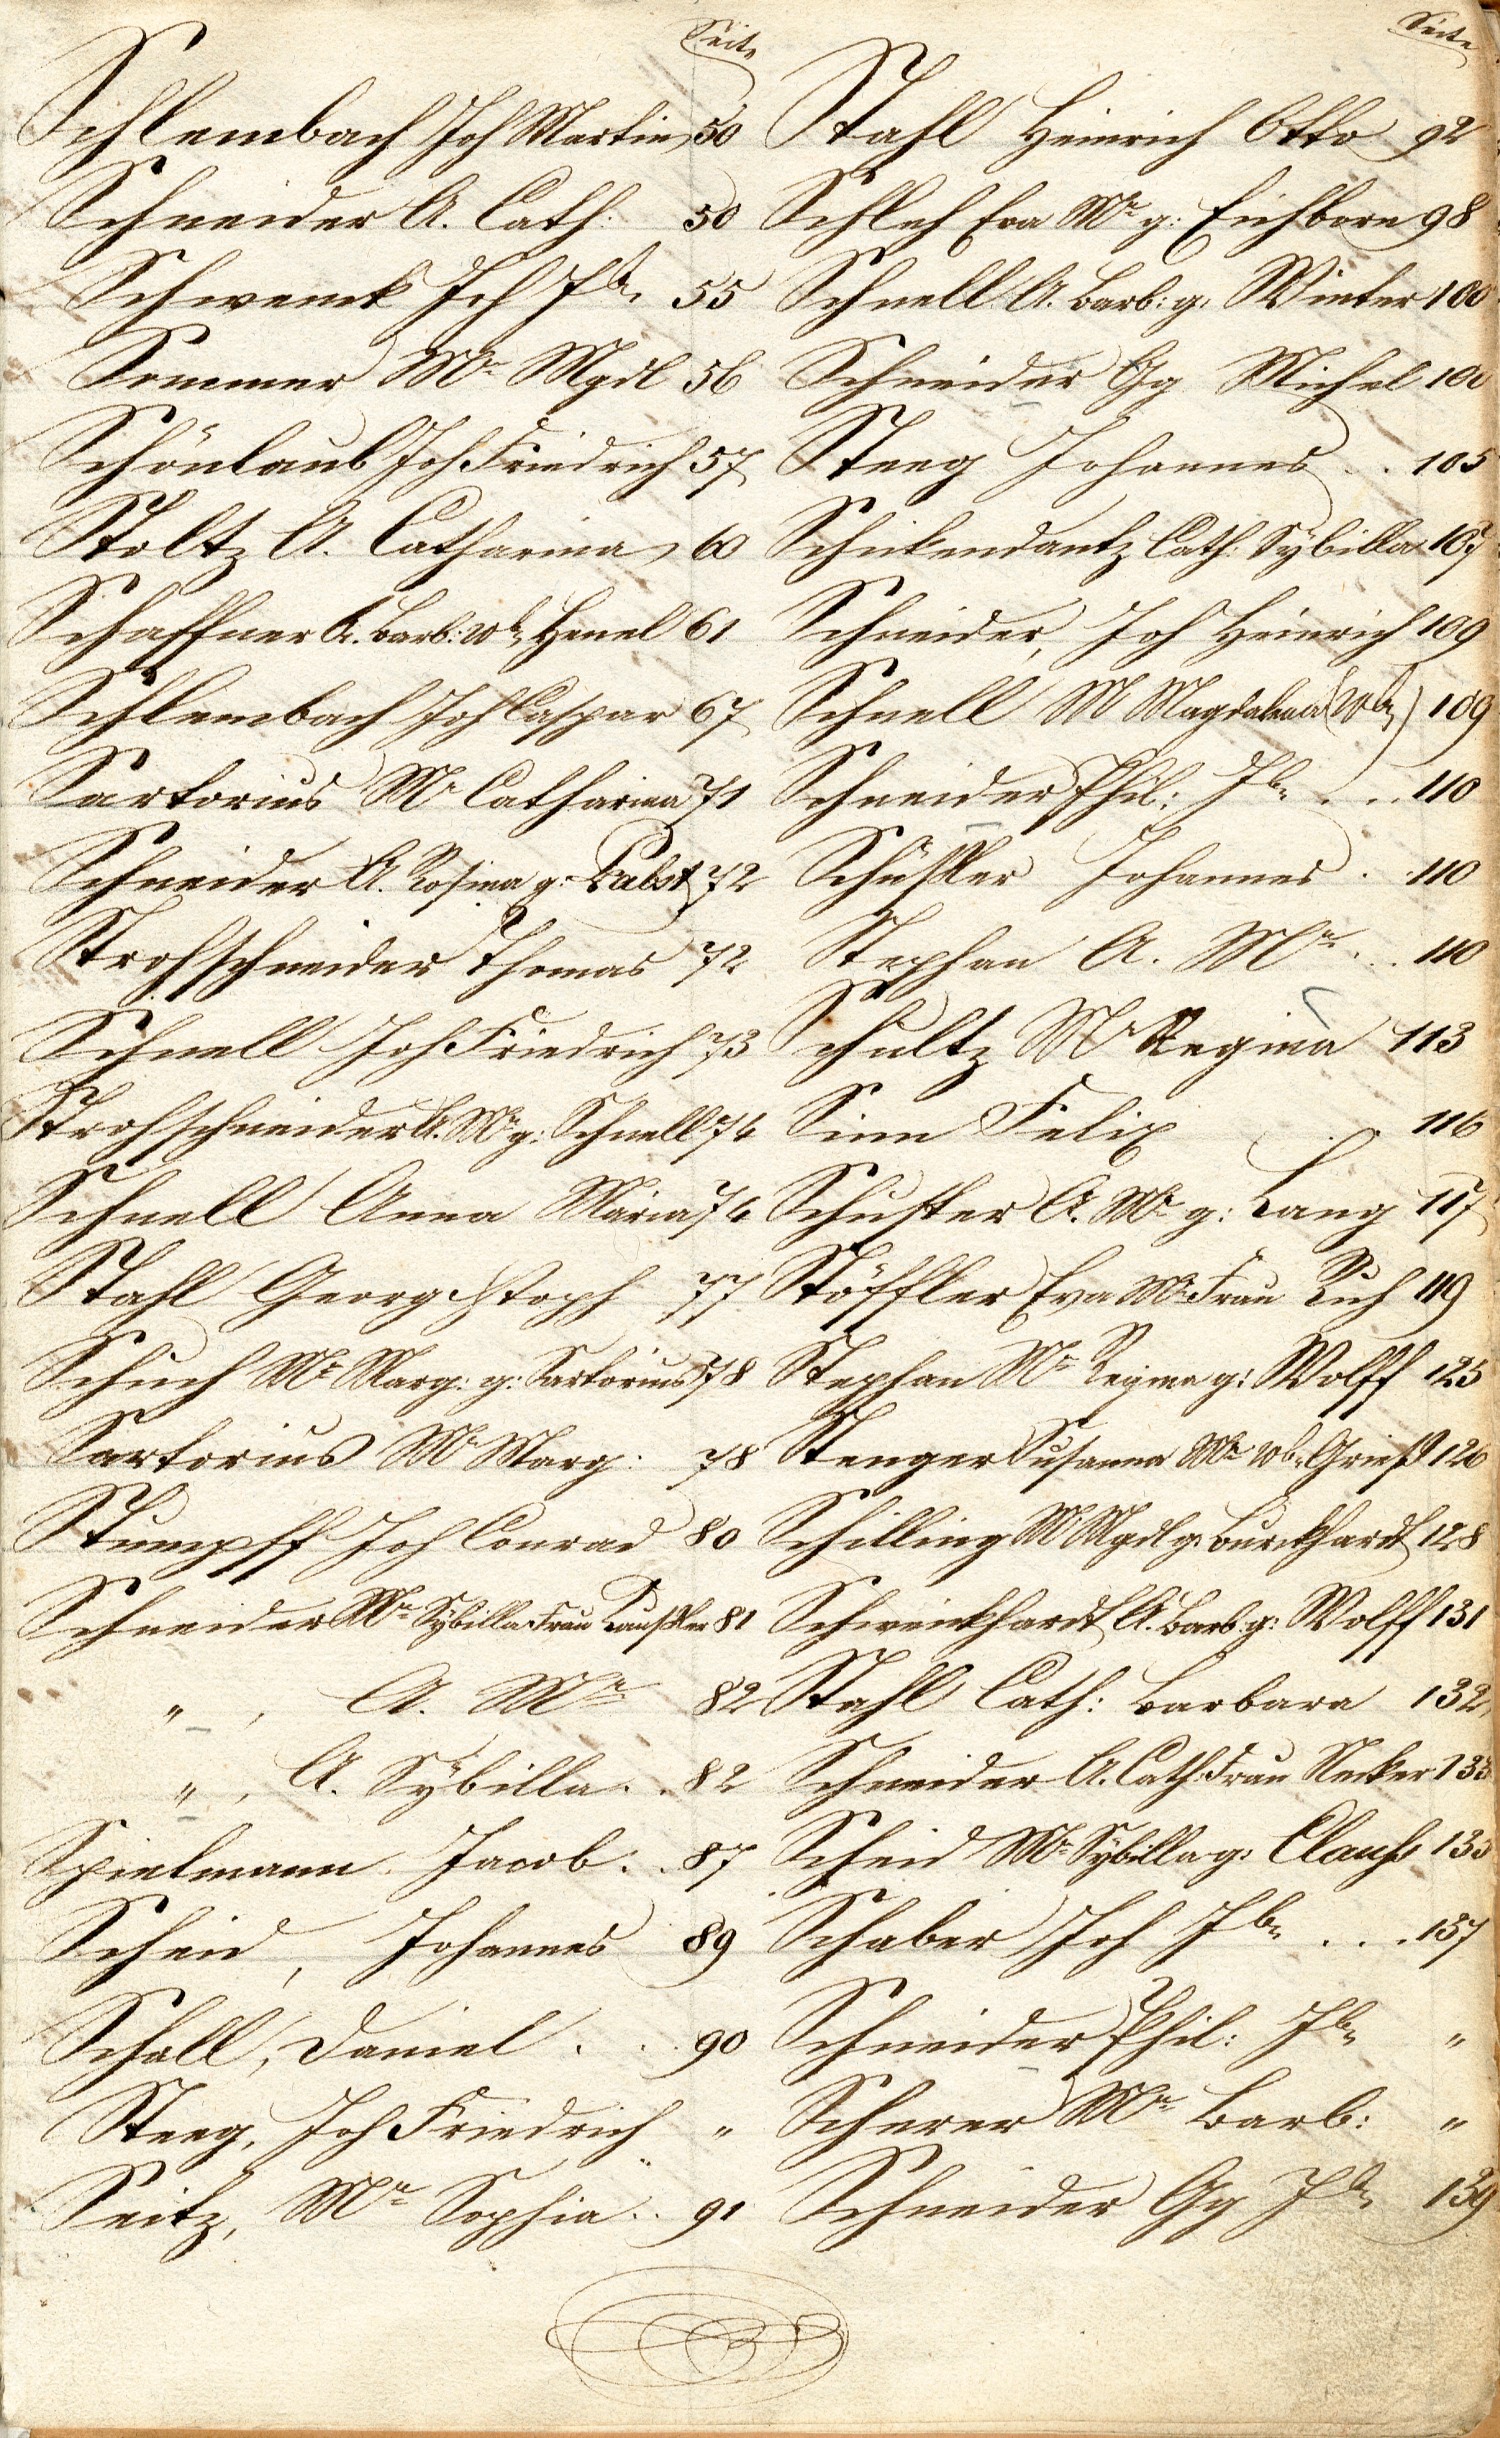 Seite
Schlembach Joh Martin 50
Schneider A. Cath: 50
Schwenck Joh Jb. 55
Sommer Mr Mgdl 56
Schönlaub Joh Friedrich 57
Stoltz A. Catharina 60
Schaffner A. Barb: Wb. Henel 61
Schlembach Joh Caspar 67
Sartorius Mr Catharina 71
Schneider A. Rosina g: Pabst 72
Strohschneider Thomas 72
Schnell Joh Friedrich 73
Strohschneider A. Mr g: Schnell 74
Schnell Anna Maria 74
Stahl Georg Chstoph 77
Schuch Mr Marg: g: Sartorius 78
Sartorius Mr Marg: 78
Stumpff Joh Conrad 80
Schneider Mr Sybilla Frau 81
" , A. Mr 82
" , A. Sybilla . . 82
Spielmann Jacob . . 87
Scheid, Johannes 89
Schall, Daniel . . . 90
Steeg, Joh Friedrich "
Seitz, Mr Sophia . . 91
Seite
Stahl Heinrich Otto 92
Schleh Eva Mr g: Eichborn 98
Schnell A. Barb: g: Winter 100
Schneider Gg Michel 100
Steeg Johannes . . 105
Schickendantz Cath: Sybilla 107
Schneider, Joh Heinrich 109
Schnell M Magdalena (Wb.) 109
Schneider Phil: Jb. . . . 110
Schüßler Johannes . . 110
Stephan A. Mr . . . 110
Schultz Mr Regina 113
Sinn Felix 116
Schuster A. Mr g: Lang 117
Stöffler Eva Mr Frau Ruh 119
Stephan Mr Regina g: Wolff 125
Stenger Susanna Mr Wb. Grieß 126
Schilling M Mgdl g: Burckhardt 128
Schweickhardt A. Barb: g: Wolff 131
Stahl Cath: Barbara 132
Schneider A. Cath: Frau Necker 133
Scheid Mr Sybilla g: Clauß 135
Schaber Joh Jb. . . . 137
Schneider Phil: Jb. "
Scherer Mr Barb: "
Schneider Gg Jb. 139